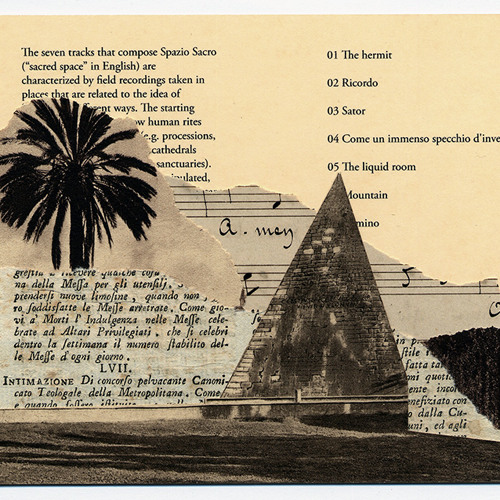 The seven tracks that compose Spazio Sacro
("sacred space" in English) are
characterized by field recordings taken in
places that are related to the idea of
ways. The starting
human rites
(e.g. processions,
cathedrals
sanctuaries).
01 The hermit
02 Ricordo
03 Sator
04 Come un immenso specchio d'inve
05 The liquid room
Mountain
A. men
na della Messa per gli utensilj.
prendersi nuove limosine, quando non
ro soddisfatte le Messe arretrate. Come gio-
vi a' Morti l' Indulgenza nelle Messe cele-
brate ad Altari Privilegiati, che si celebri
dentro la settimana il numero stabilito del-
le Messe d'ogni giorno.
LVII.
INTIMAZIONE Di concorso pelvacante Canoni-
cato Teologale della Metropolitana. Come
o dalla Cu-
uni, ed agli